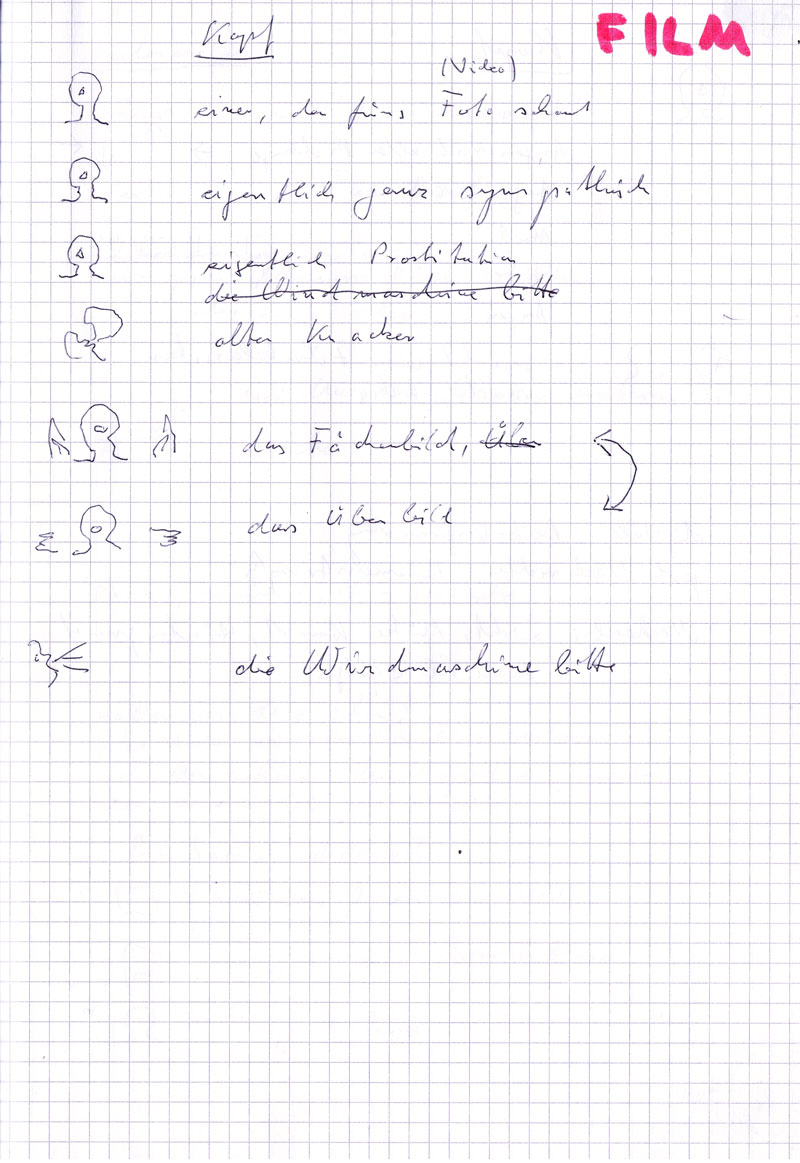 FILM
Kopf
(Video)
einer, der fürs Foto schaut
eigentlich ganz sympathisch
eigentlich Prostitution
die Windmaschine bitte
alter Knacker
das Fächerbild, Über
das Überbild
die Windmaschine bitte